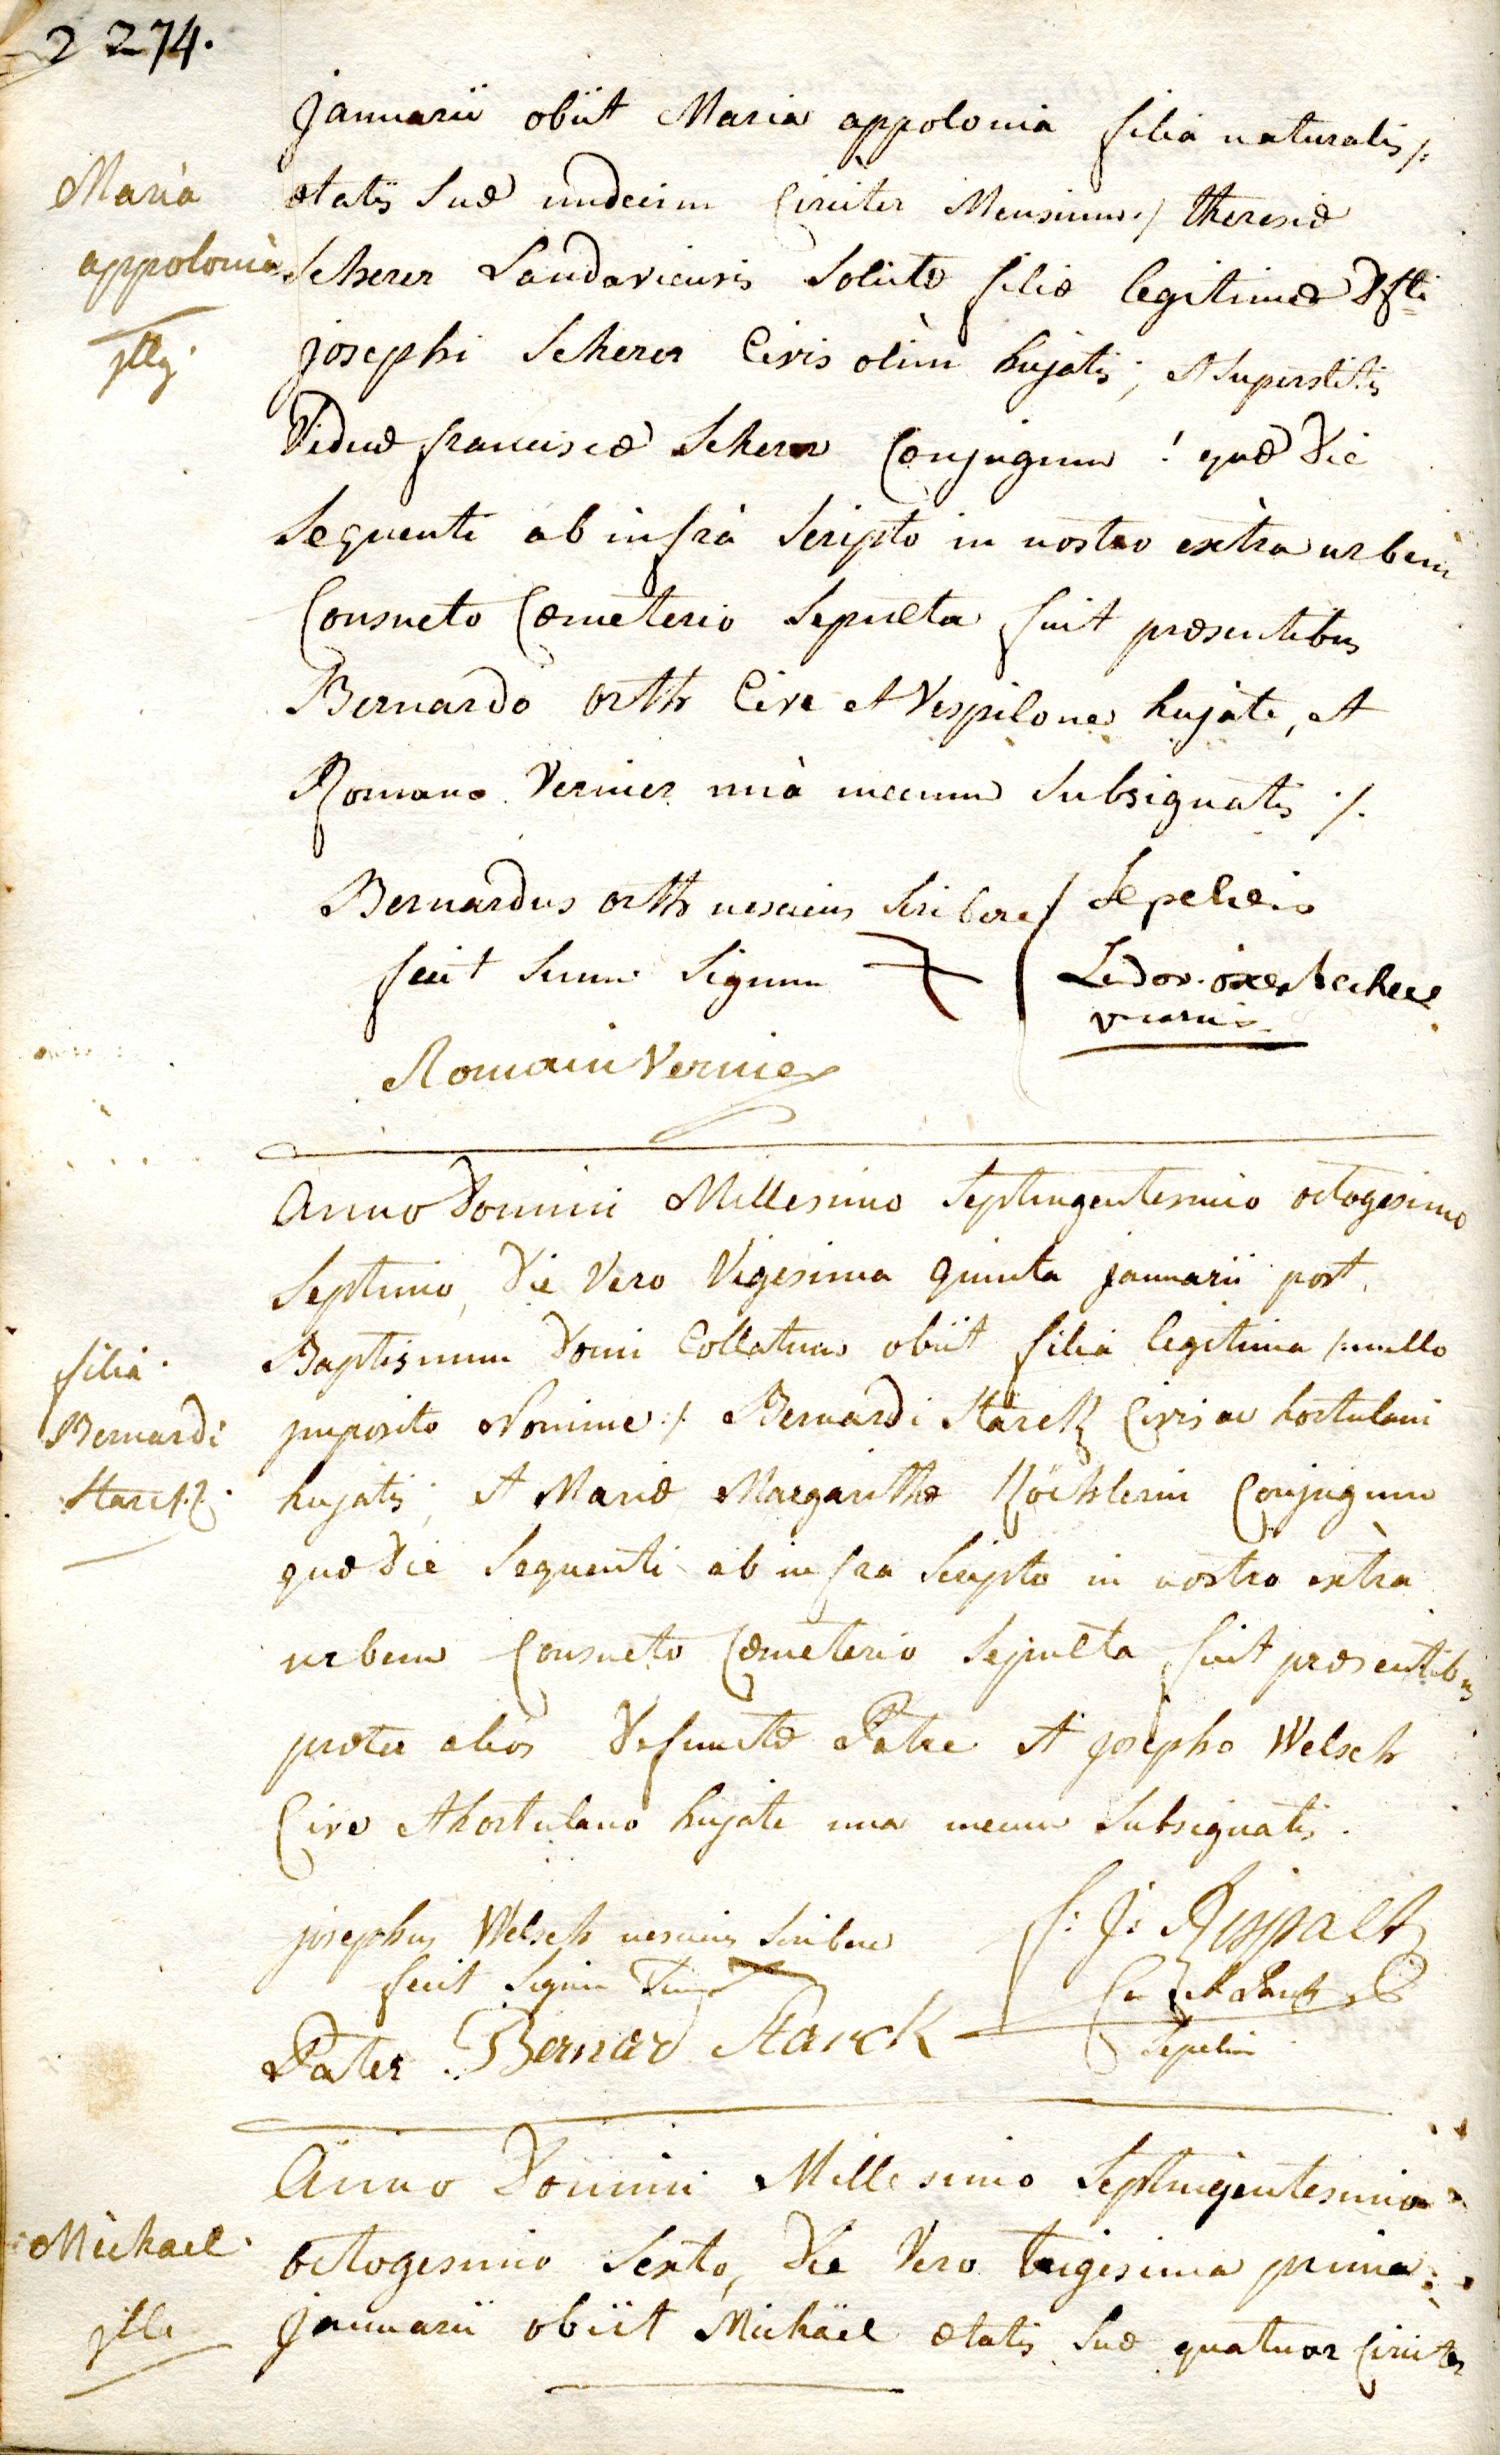 2 274.
Januarii obiit Maria appolonia filia naturalis /:
Maria
ætatis Suæ undecim Circiter Mensium :/ theresiæ
appolonia
Scherer Landaviensis Solutæ filiæ legitimæ Dfti
jllg.
josephi Scherer Civis olim hujatis, et Superstitis
Viduæ franciscæ Scherer Conjugum ! quæ Die
Sequenti ab infrà Scripto in nostro extra urbem
Consueto Cœmeterio Sepulta fuit præsentibus
Bernardo orth Cive et Vespilone hujate, et
Romano Vernier unà mecum Subsignatis /.
Bernardus orth nesciens Scribere
fecit Suum Signum
Sepelivi
Romain Vernier
Anno Domini Millesimo Septingentesimo octogesimo
Septimo, Die Vero Vigesima quinta januarii post
Baptismum Domi Collatum obiit filia legitima /: nullo
filia
imposito Nomine :/ Bernardi Starck Civis ac hortulani
Bernardi
Starck
hujatis, et Mariæ Margarithæ Köchlerin Conjugum
quæ Die Sequenti ab infra Scripto in nostro extra
urbem Consueto Cœmeterio Sepulta fuit præsentibus
præter alios Defunctæ Patre et josepho Welsch
Cive et hortulano hujate una mecum Subsignatis.
josephus Welsch nesciens Scribere
fecit Signum Suum
Pater Bernard Starck
Sepelivi
Anno Domini Millesimo Septingentesimo
Michael
octogesimo Sexto, Die Vero trigesima prima
januarii obiit Michäel ætatis Suæ quatuor Circiter